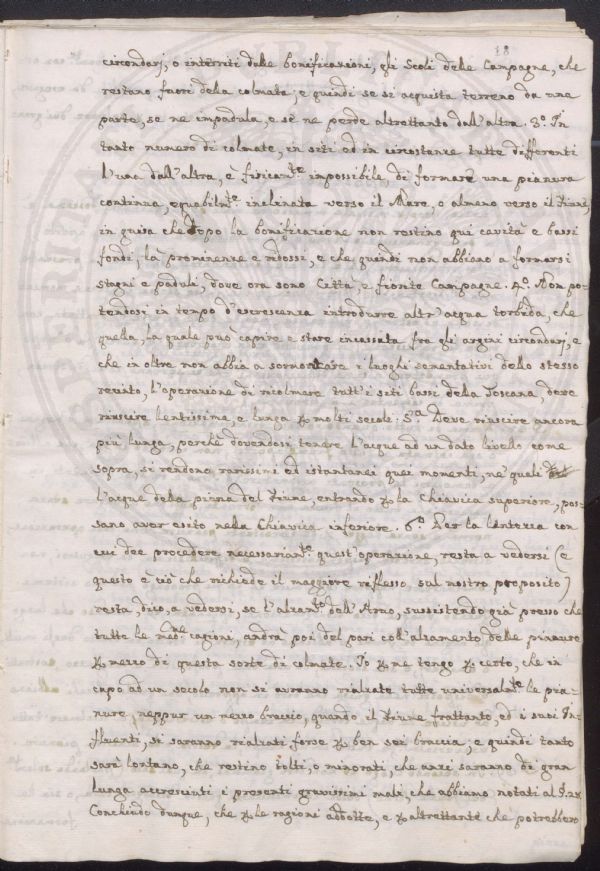 18
circondarj, o interriti dalle bonificazioni, gli Scoli delle Campagne, che
restano fuori della colmata, e quindi se si acquista terreno da una
parte, se ne impadula, e se ne perde altrettanto dall'altra. 3.º In
tanto numero di colmate, in siti ed in circostanze tutte differenti
l'una dall'altra, è fisicam.te impossibile di formare una pianura
continua, equabilm.te inclinata verso il Mare, o almeno verso il Fiume,
in guisa che dopo la bonificazione non restino qui cavità e bassi
fondi, là prominenze e ridossi, e che quindi non abbiano a formarsi
stagni e paduli, dove ora sono Città, e fiorite Campagne. 4.º Non po-
tendosi in tempo d'escrescenza introdurre altr'acqua torbida, che
quella, la quale può capire e stare incassata fra gli argini circondarj, e
che in oltre non abbia a sormontare i luoghi sementativi dello stesso
recinto, l'operazione di ricolmare tutt'i siti bassi della Toscana, deve
riuscire lentissima, e lunga p molti secoli. 5.ª Deve riuscire ancora
più lunga, perchè dovendosi tenere l'acque ad un dato livello come
sopra, si rendono rarissimi ed istantanei quei momenti, ne' quali
l'acque della piena del Fiume, entrando p la Chiavica superiore, pos-
sano aver esito nella Chiavica inferiore. 6.º Par la lentezza con
cui dee procedere necessariam.te quest'operazione, resta a vedersi (e
questo è ciò che richiede il maggiore riflesso sul nostro proposito)
resta, dico, a vedersi, se l'alzam.to dell'Arno, sussistendo già presso che
tutte le med.me cagioni, andrà poi del pari coll'alzamento delle pianure
p mezzo di questa sorte di colmate. Io p me tengo p certo, che in
capo ad un secolo non si avranno rialzate tutte universalm.te le pia-
nure, neppur un mezzo braccio, quando il Fiume frattanto, ed i suoi In-
fluenti, si saranno rialzati forse p ben sei braccia; e quindi tanto
sarà lontano, che restino tolti, o minorati, che anzi saranno di gran
lunga accresciuti i presenti gravissimi mali, che abbiamo notati al §.
Conchiudo dunque, che p le ragioni addotte, e p altrettante che potrebbero